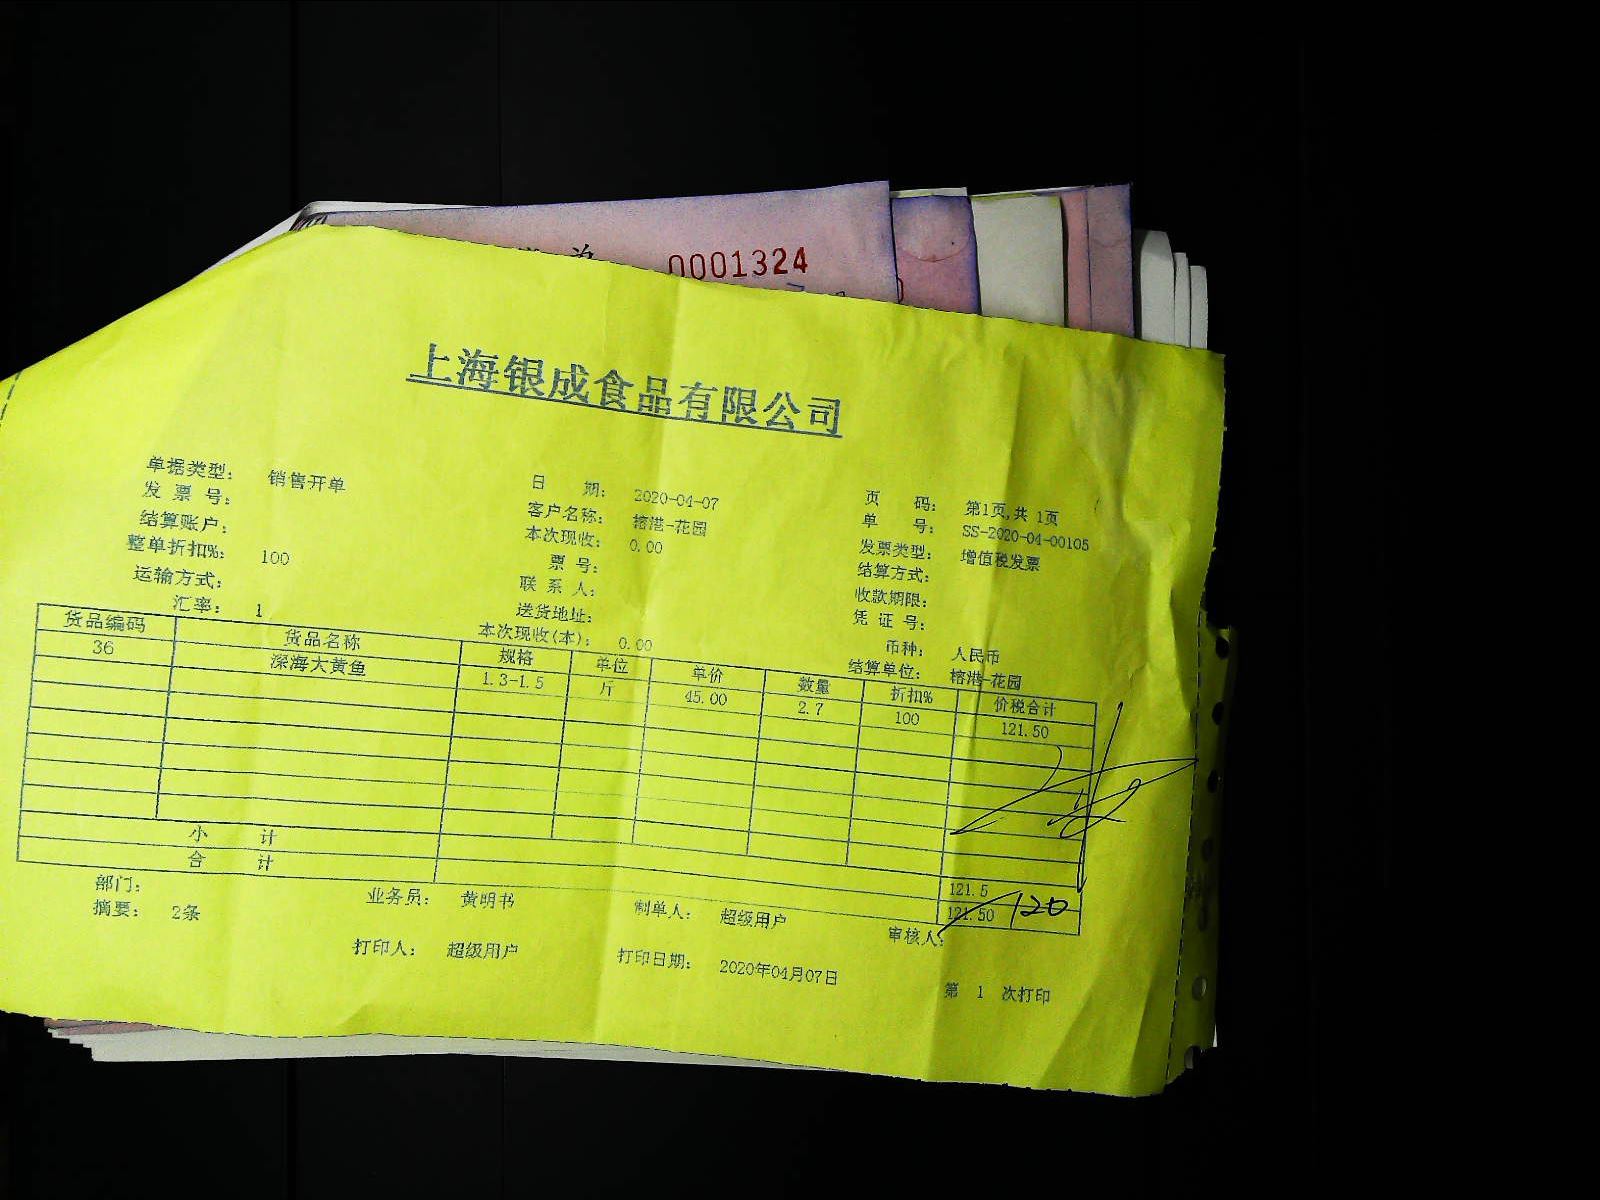 0001324
上海银成食品有限公司
单据类型： 销售开单 日 期： 2020-04-07 页 码： 第1页,共 1页
发 票 号： 客户名称： 榕港-花园 单 号： SS-2020-04-00105
结算账户： 本次现收： 0.00 发票类型： 增值税发票
整单折扣%： 100 票 号： 结算方式：
运输方式： 联 系 人： 收款期限：
汇率： 1 送货地址： 凭 证 号：
本次现收(本)： 0.00 币种： 人民币
结算单位： 榕港-花园
货品编码 货品名称 规格 单位 单价 数量 折扣% 价税合计
36 深海大黄鱼 1.3-1.5 斤 45.00 2.7 100 121.50
小 计 121.5
合 计 121.50 120
部门： 业务员： 黄明书 制单人： 超级用户 审核人：
摘要： 2条
打印人： 超级用户 打印日期： 2020年04月07日 第 1 次打印